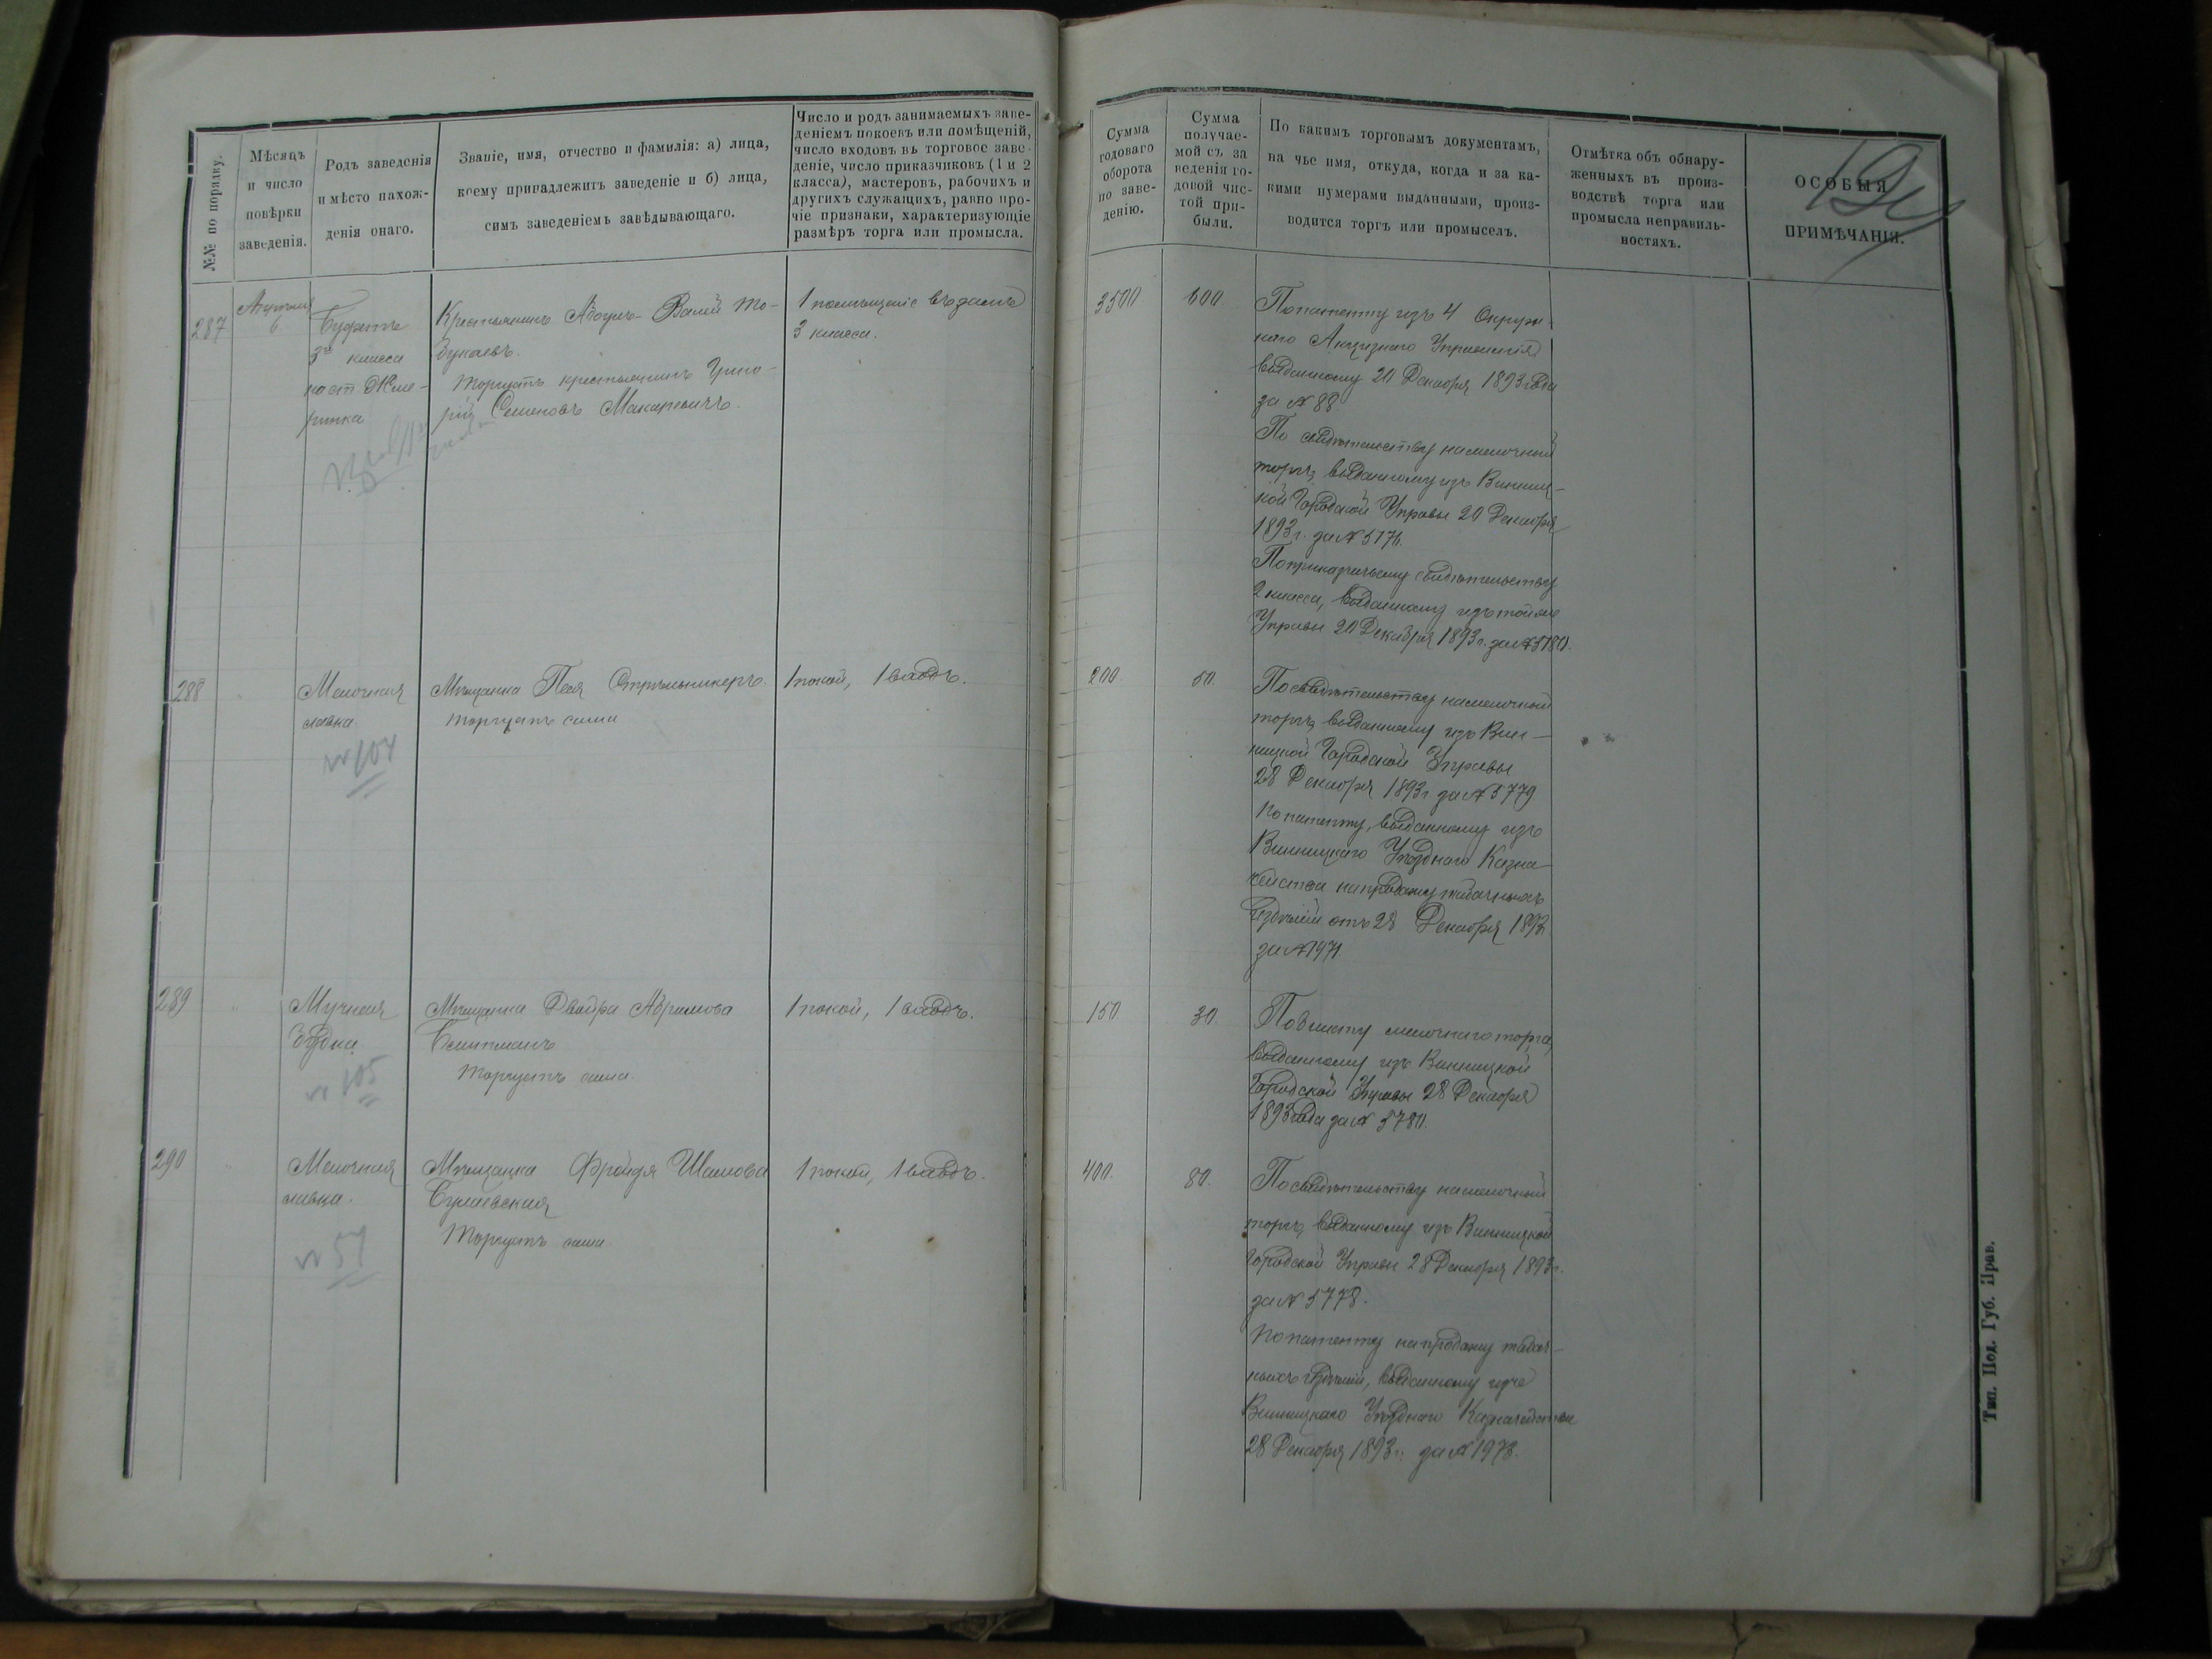 №№ по порядку.
Мѣсяцъ
и число
повѣрки
заведенія.
Родъ заведенія
и мѣсто нахож-
денія онаго.
Званіе, имя, отчество и фамилія: а) лица,
коему принадлежитъ заведеніе и б) лица,
симъ заведеніемъ завѣдывающаго.
Число и родъ занимаемыхъ заве-
деніемъ покоевъ или помѣщеній,
число входовъ въ торговое заве-
деніе, число приказчиковъ (1 и 2
класса), мастеровъ, рабочихъ и
другихъ служащихъ, равно про-
чіе признаки, характеризующіе
размѣръ торга или промысла.
Сумма
годоваго
оборота
по заве-
денію.
Сумма
получае-
мой съ за
веденія го-
довой чис-
той при-
были.
По какимъ торговымъ документамъ,
на чье имя, откуда, когда и за ка-
кими нумерами выданными, произ-
водится торгъ или промыселъ.
Отмѣтка объ обнару-
женныхъ въ произ-
водствѣ торга или
промысла неправиль-
ностяхъ.
ОСОБЫЯ
ПРИМѢЧАНІЯ.
287
6
Буфетъ
3го класса
на ст. Жме-
ринка
Крестьянинъ
Торгуетъ крестьянинъ Григо-
рій Семеновъ Макаревичъ.
1 помѣщеніе въ залѣ
3 класса.
3500
600
По патенту изъ 4 Окруж-
наго Акцизнаго Управленія
выданному 20 Декабря 1893 года
за № 88.
По свидѣтельству на мелочный
торгъ, выданному изъ Винниц-
кой Городской Управы 20 Декабря
1893 г. за № 5176.
По приказчичьему свидѣтельству
2 класса, выданному изъ той же
Управы 20 Декабря 1893 г. за №
288
"
Мелочная
лавка.
№ 104
Мѣщанка Песя
торгуетъ сама
1 покой, 1 входъ.
200.
50.
По свидѣтельству на мелочный
торгъ, выданному изъ Вин-
ницкой Городской Управы
28 Декабря 1893 г. за № 5779
По патенту, выданному изъ
Винницкаго Уѣзднаго Казна-
чейства на продажу табачныхъ
издѣлій отъ 28 Декабря 1893
за № 1971.
289
"
Мучная
Будка.
№ 105
Мѣщанка Двойра Абрамова
Торгуетъ сама.
1 покой, 1 входъ.
150.
30.
По билету мелочнаго торга,
выданному изъ Винницкой
Городской Управы 28 Декабря
1893 года за № 5780.
290
"
Мелочная
лавка.
№ 57
Мѣщанка Фройдя
Торгуетъ сама.
1 покой, 1 входъ.
400.
80.
По свидѣтельству на мелочный
торгъ, выданному изъ Винницкой
Городской Управы 28 Декабря 1893 г.
за № 5778.
По патенту на продажу табач-
ныхъ издѣлій, выданному изъ
Винницкаго Уѣзднаго Казначейства
28 Декабря 1893 г. за № 1973.
Тип. Под. Губ. Прав.